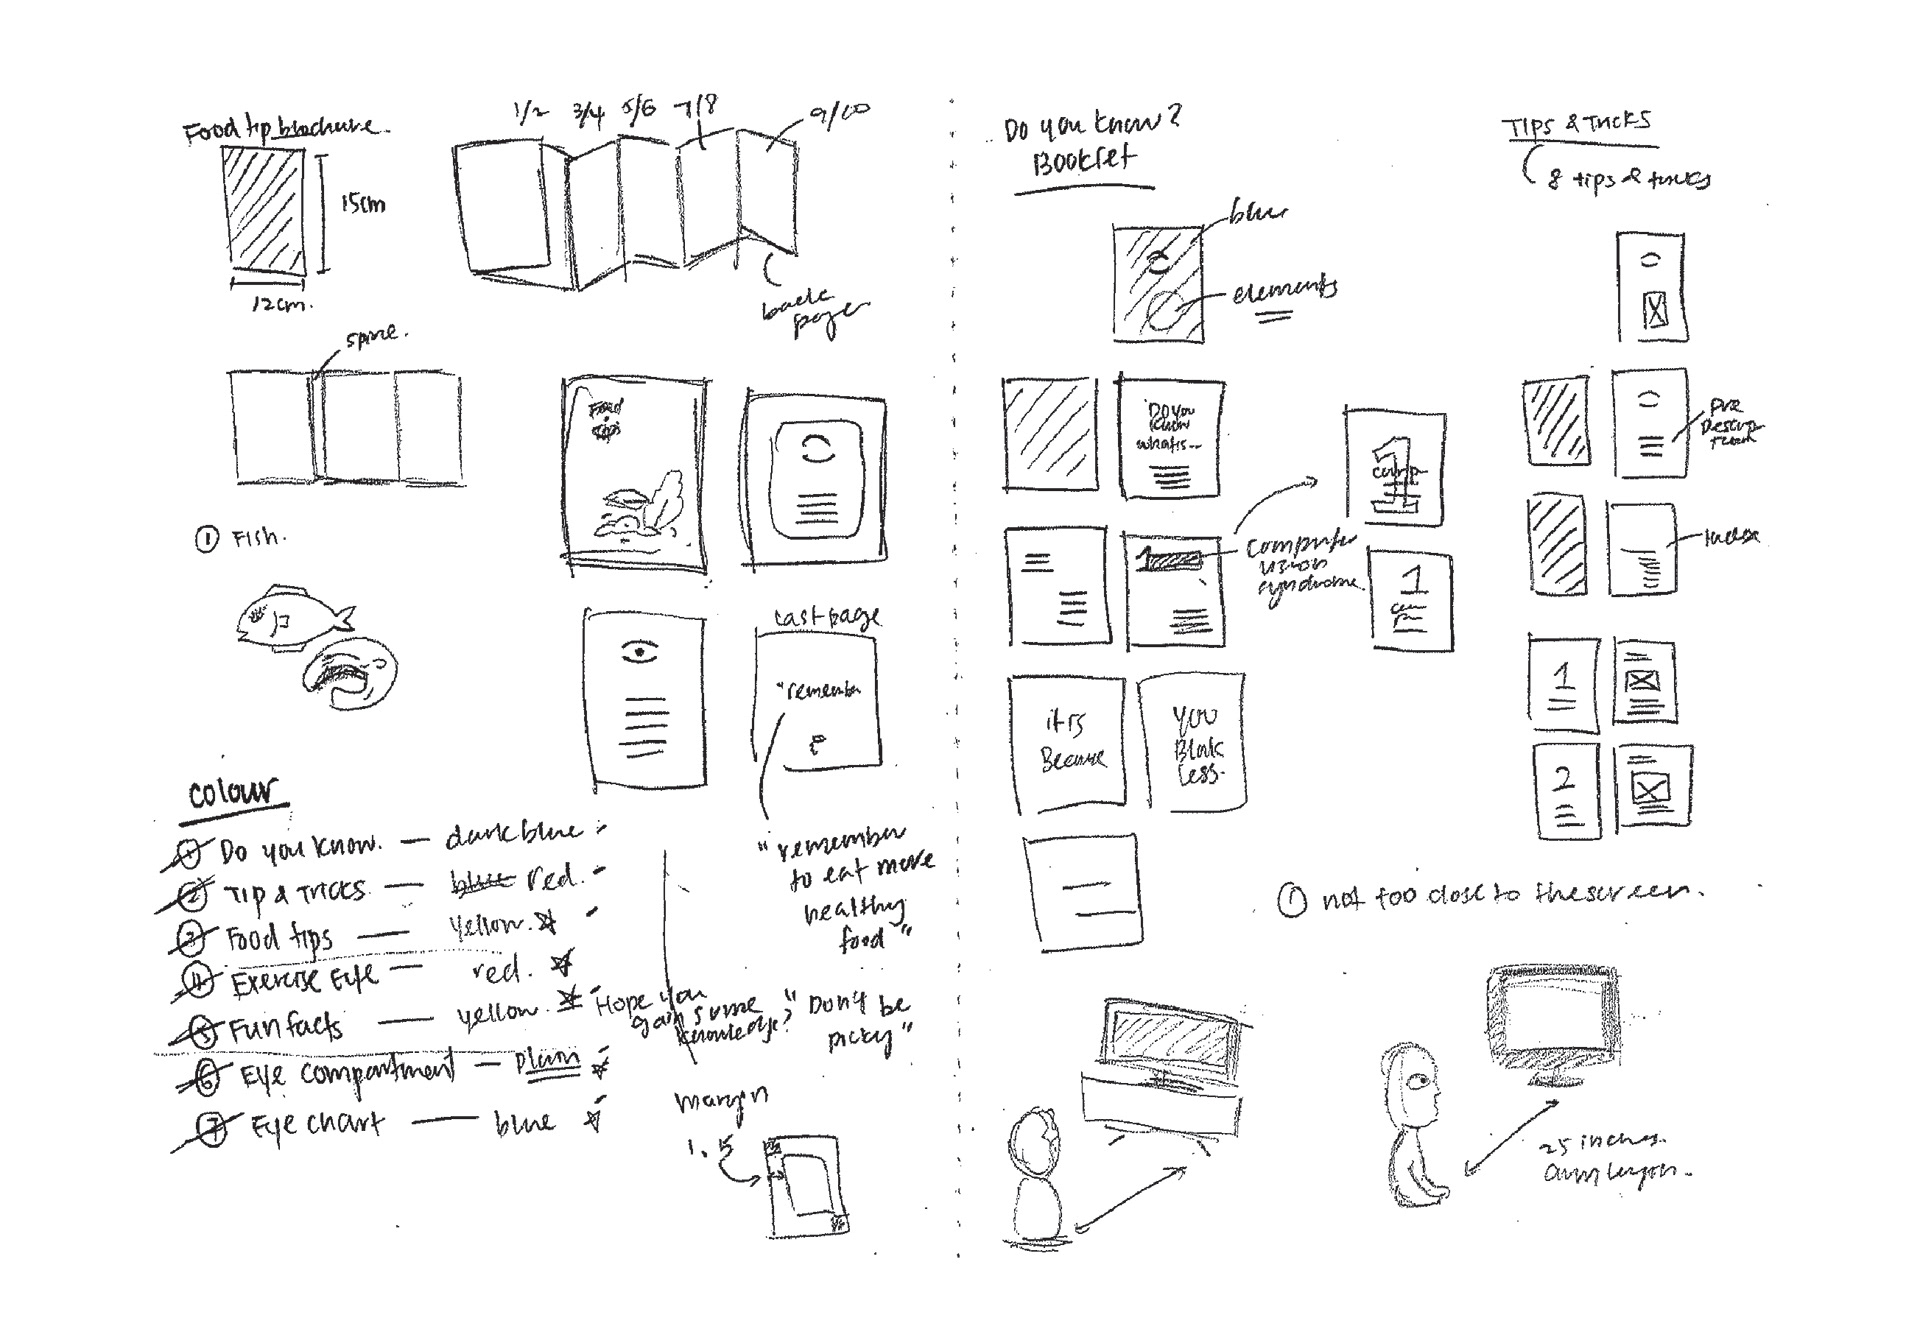 Food tip brochure.
15cm
12cm.
1/2 3/4 5/6 7/8 9/10
back
page
spine.
① Fish.
Food
tips
last page
"remember
"remember
to eat more
healthy
food"
"Don't be
picky"
Hope you
gain some
knowledge?
colour
① Do you know. — dark blue
② Tip & Tricks — blue red.
③ Food tips — yellow.
④ Exercise Eye — red.
⑤ Fun facts — yellow.
⑥ Eye compartment — plain
⑦ Eye chart — blue
margin
1.5
Do you know?
Booklet
blue
elements
Do you
know
what is...
1
computer
vision
syndrome.
1
comp
1
it is
Because
you
Blink
Less.
TIPS & TRICKS
8 tips & tricks
Index
1
2
① not too close to the screen.
25 inches.
arm length.